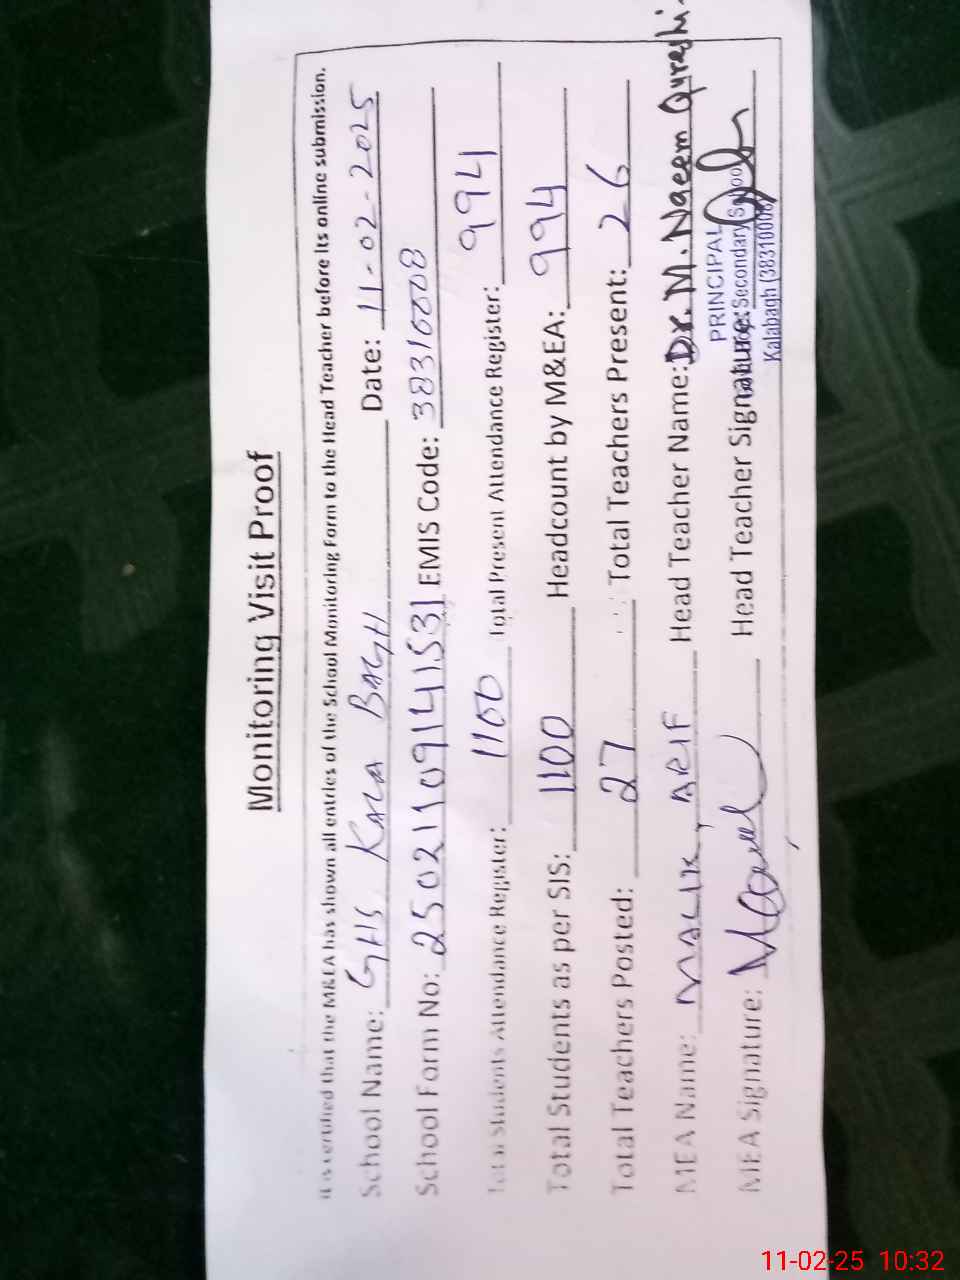 Monitoring Visit Proof
It is certified that the M&EA has shown all entries of the School Monitoring Form to the Head Teacher before its online submission.
School Name: GHS KALA BAGH Date: 11-02-2025
School Form No: 25021109141531 EMIS Code: 38310008
Total Students Attendance Register: 1100 Total Present Attendance Register: 994
Total Students as per SIS: 1100 Headcount by M&EA: 994
Total Teachers Posted: 27 Total Teachers Present: 26
MEA Name: MALIK, ARIF Head Teacher Name: Dr. M. Naeem Qureshi
MEA Signature: Head Teacher Signature:
PRINCIPAL
Secondary School
Kalabagh (38310008)
11-02-25 10:32